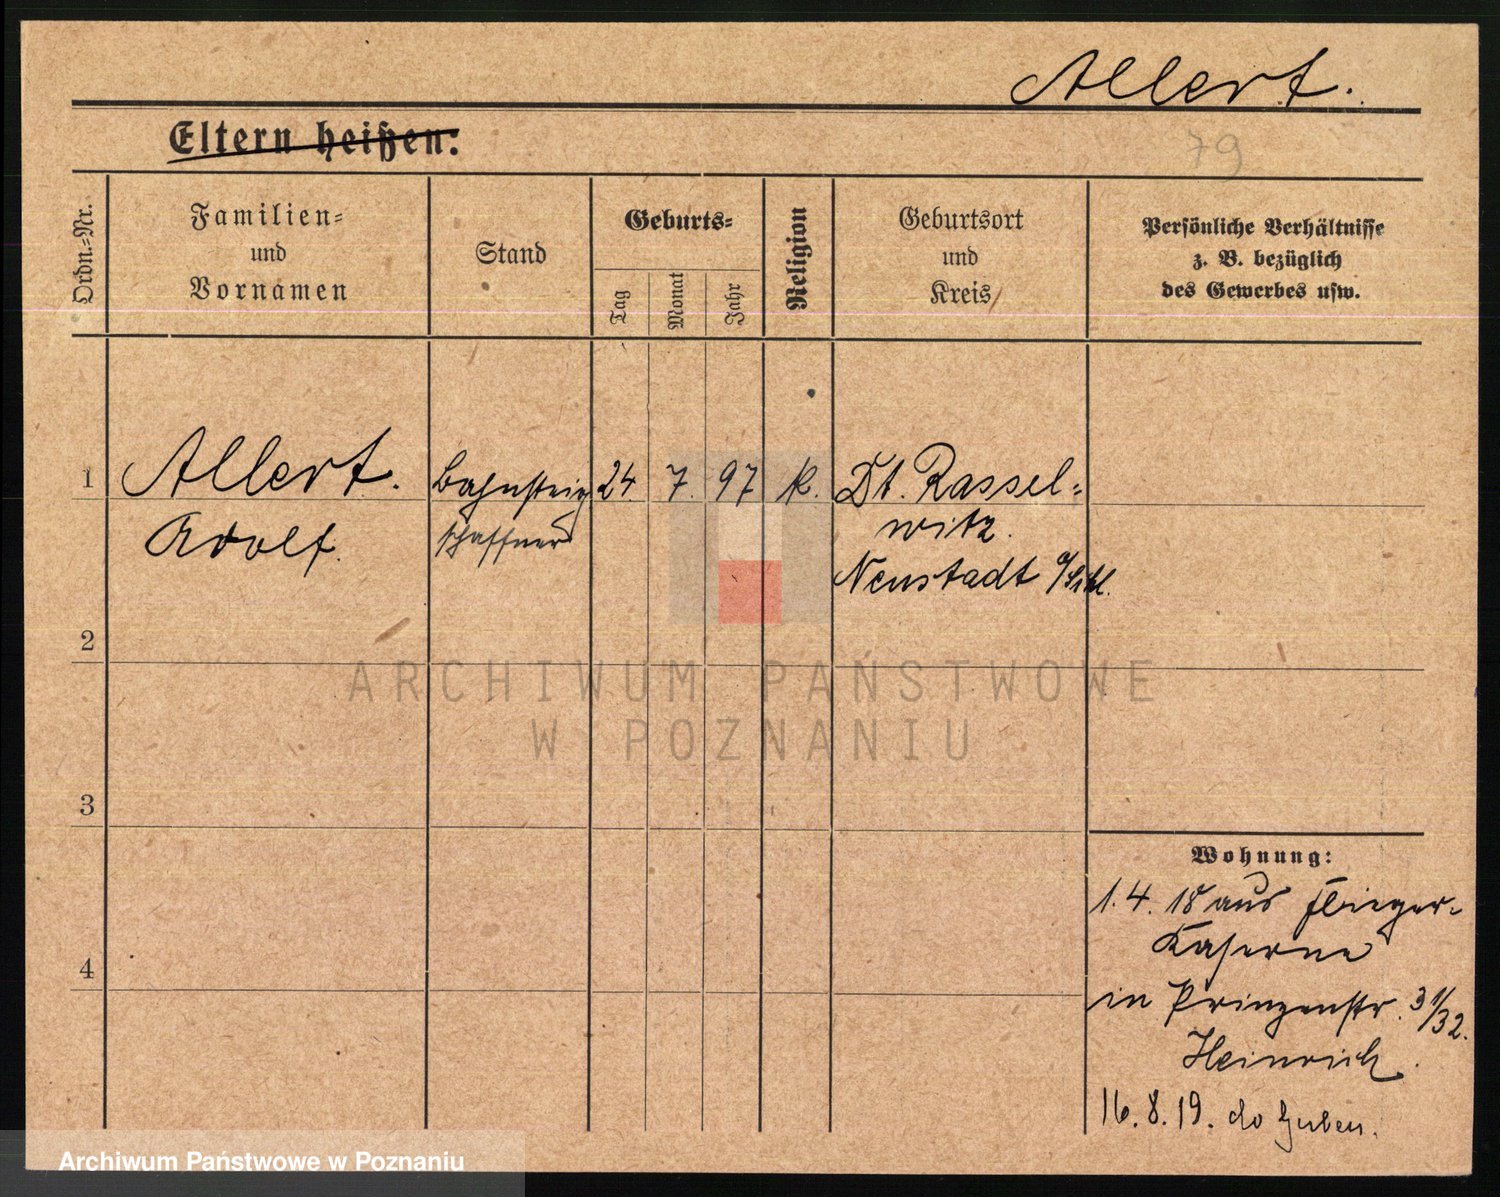 Allert.
Eltern heißen:
79
Ordn.-Nr.
Familien-
und
Vornamen
Stand
Geburts-
Tag
Monat
Jahr
Religion
Geburtsort
und
Kreis
Persönliche Verhältnisse
z. B. bezüglich
des Gewerbes usw.
1 Allert. Bahnsteig 24. 7. 97 k. Dt. Rassel-
Adolf. schaffner witz.
Neustadt O/Schl.
2
ARCHIWUM PAŃSTWOWE
W POZNANIU
3
Wohnung:
1. 4. 18 aus Flieger-
4 Kaserne
in Prinzenstr. 31/32.
Heinrich.
16. 8. 19. do Guben.
Archiwum Państwowe w Poznaniu